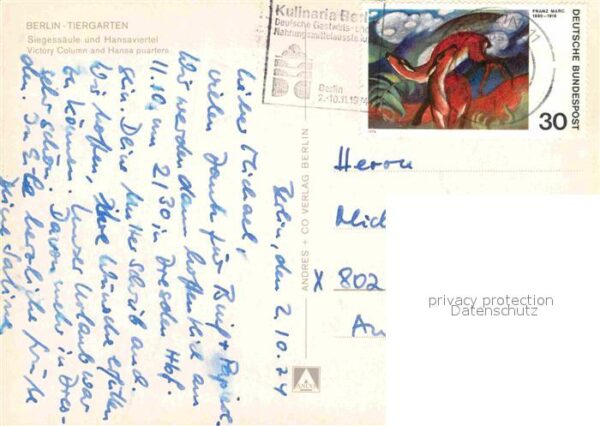 BERLIN - TIERGARTEN
Siegessäule und Hansaviertel
Victory Column and Hansa puarters
Kulinaria Berlin
Deutsche Gastwirts- und
Nahrungsmittelausstellung
Berlin
2.-10.11.1974
FRANZ MARC
1880-1916
DEUTSCHE BUNDESPOST
30
ANDRES + CO VERLAG BERLIN
Berlin, den 2.10.74
Lieber Michael,
vielen Dank für Brief + Papiere.
Wir werden dann hoffentlich am
11.10 um 21³⁰ in Dresden Hbf.
sein. Deine Mutter schrieb und
wir hoffen, ihre Wünsche erfüllen
zu können. Unser Urlaub war
sehr schön. Davon mehr in Dres-
den. In Eile herzliche Grüße
Deine Sabine
Herrn
Mich
X 802
privacy protection
Datenschutz